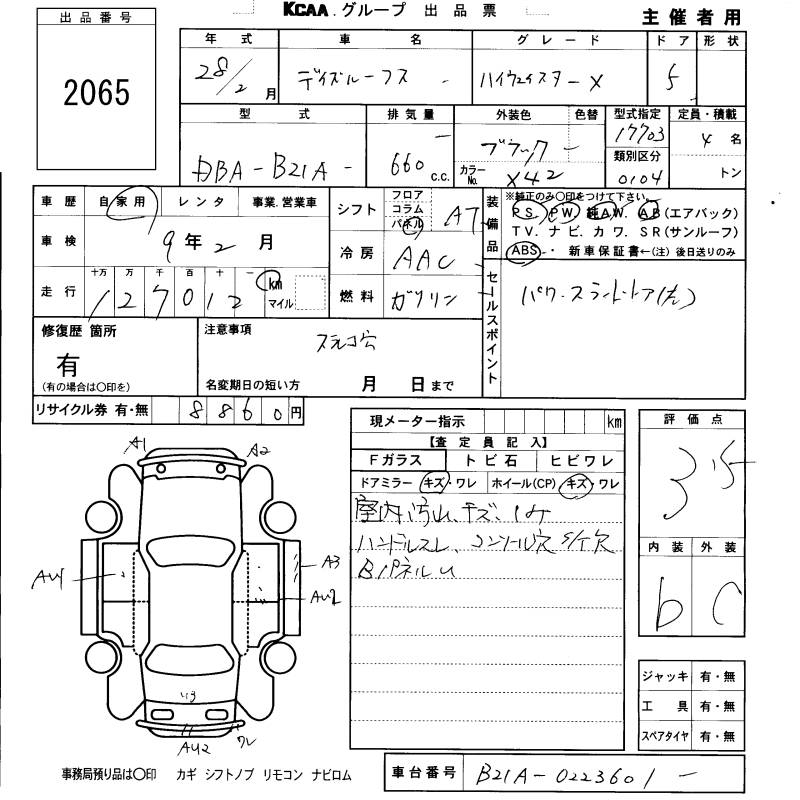 KCAA.グループ 出品票
主催者用
出品番号
2065
年式 車名 グレード ドア 形状
28/2月 デイズルークス ハイウェイスターX 5
型式 排気量 外装色 色替 型式指定 定員・積載
DBA-B21A 660 c.c. ブラック カラーNo. X42 17703 4名
類別区分 0104 トン
車歴 自家用 レンタ 事業.営業車
シフト フロア コラム パネル AT
装備品 ※純正のみ○印をつけて下さい。
PS. PW. 純AW. AB(エアバック)
TV.ナビ.カワ.SR(サンルーフ)
ABS・ 新車保証書←(注)後日送りのみ
車検 9年2月
冷房 AAC
走行 十万 万 千 百 十 一
127012 km マイル
燃料 ガソリン
セールスポイント パワースライドドア(左)
修復歴 箇所
有
(有の場合は○印を)
注意事項
名変期日の短い方 月 日まで
リサイクル券 有・無 8860円
現メーター指示 km
【査定員記入】
Fガラス トビ石 ヒビワレ
ドアミラー キズ・ワレ ホイール(CP) キズ・ワレ
室内汚レ、キズ、シミ
ハンドルスレ、コンソール穴
BパネルU
評価点
3.5
内装 外装
b C
A1 A2
AU1 A3
AU2
AU2 ワレ
ジャッキ 有・無
工具 有・無
スペアタイヤ 有・無
事務局預り品は○印 カギ シフトノブ リモコン ナビロム
車台番号 B21A-0223601